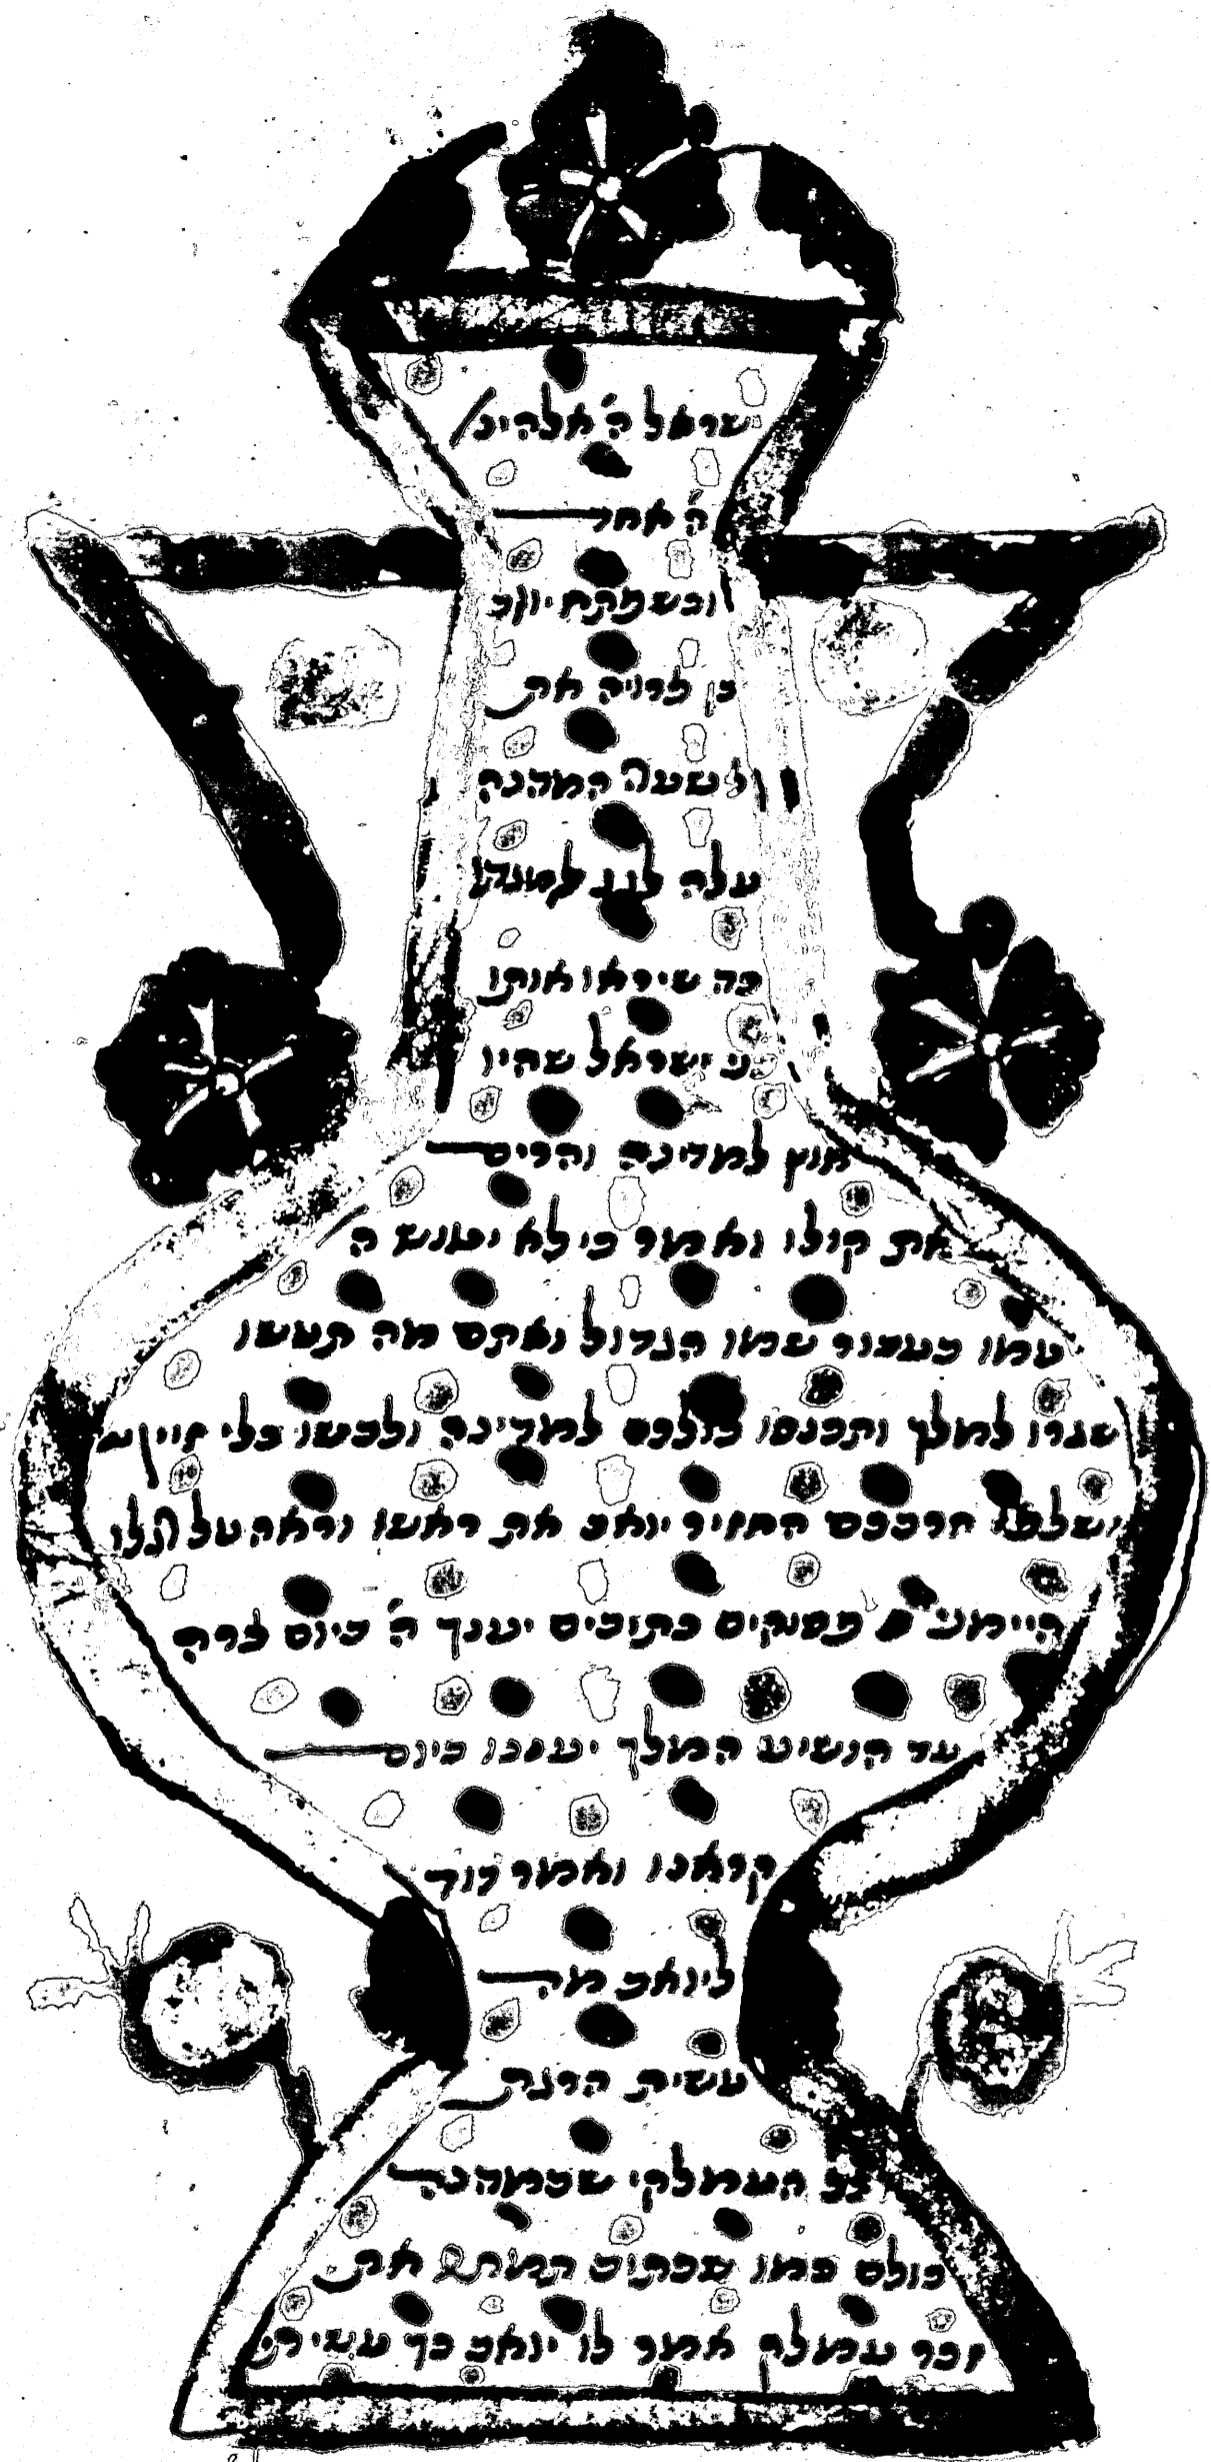 ישראל ה' אלהינו
ה' אחד
וכשפתח יואב
כן לרויה את
לשעה המדנה
עלה לגג למגדל
כה שיראו אותו
בני ישראל שהיו
חוץ למדינה והרים
את קולו ואמר כי לא יטוש ה
עמו בעבור שמו הגדול ואתם מה תעשו
שגרו למלך ותכנסו כולכם למדינה ולבשו כלי זיין
החזיר יואב את ראשו וראה על
פסוקים כתובים יענך ה' ביום צרה
עד הושיע המלך יעננו ביום
קראנו ואמר דוד
ליואב מה
עשית הרגת
העמלקי שבמדנה
כולם כמו שכתוב תמחה את
זכר עמלק אמר לו יואב כך עשיתי